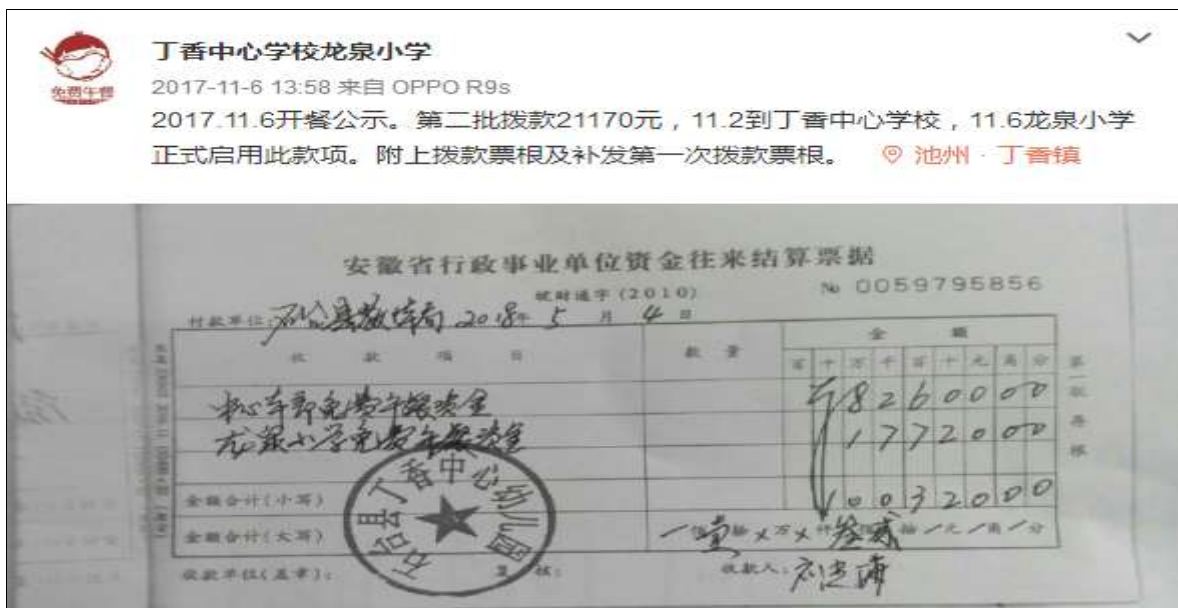 丁香中心学校龙泉小学
免费午餐
2017-11-6 13:58 来自 OPPO R9s
2017.11.6开餐公示。第二批拨款21170元，11.2到丁香中心学校，11.6龙泉小学
正式启用此款项。附上拨款票根及补发第一次拨款票根。 池州·丁香镇
安徽省行政事业单位资金往来结算票据
皖财通字(2010) № 0059795856
付款单位：石台县教体局 2018年 5 月 4 日
收 款 项 目 数 量 金 额
百 十 万 千 百 十 元 角 分
免费午餐资金 8260000
龙泉小学免费午餐资金 1772000
金额合计(小写) 10032000
金额合计(大写)
石台县丁香中心幼儿园
收款单位(盖章)： 复 核： 收款人：